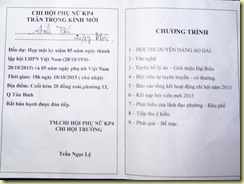 CHI HỘI PHỤ NỮ KP4
TRÂN TRỌNG KÍNH MỜI
Đến dự: Họp mặt kỷ niệm 85 năm ngày thành
lập hội LHPN Việt Nam (20/10/1930-
20/10/2015) và 05 năm ngày phụ nữ Việt Nam
Thời gian: 18h ngày 18/10/2015 (chủ nhật)
Địa điểm: Cuối hẻm 20 đồng xoài, phường 13,
Q Tân Bình
Rất hân hạnh được đón tiếp.
TM.CHI HỘI PHỤ NỮ KP4
CHI HỘI TRƯỞNG
Trần Ngọc Lệ
CHƯƠNG TRÌNH
1 - HỘI THI DUYÊN DÁNG ÁO DÀI
2 - Văn nghệ
3 - Tuyên bố lý do – Giới thiệu Đại Biểu
4 - Hội viên tự tuyên truyền – có thưởng.
5 - Báo cáo tổng kết hoạt động chi hội năm 2015
6 - Kết nạp hội viên mới 2015
7 - Phát biểu của lãnh đạo phường – Khu phố
8 - Tiếp thu ý kiến.
9 - Phát quà – Bế mạc.